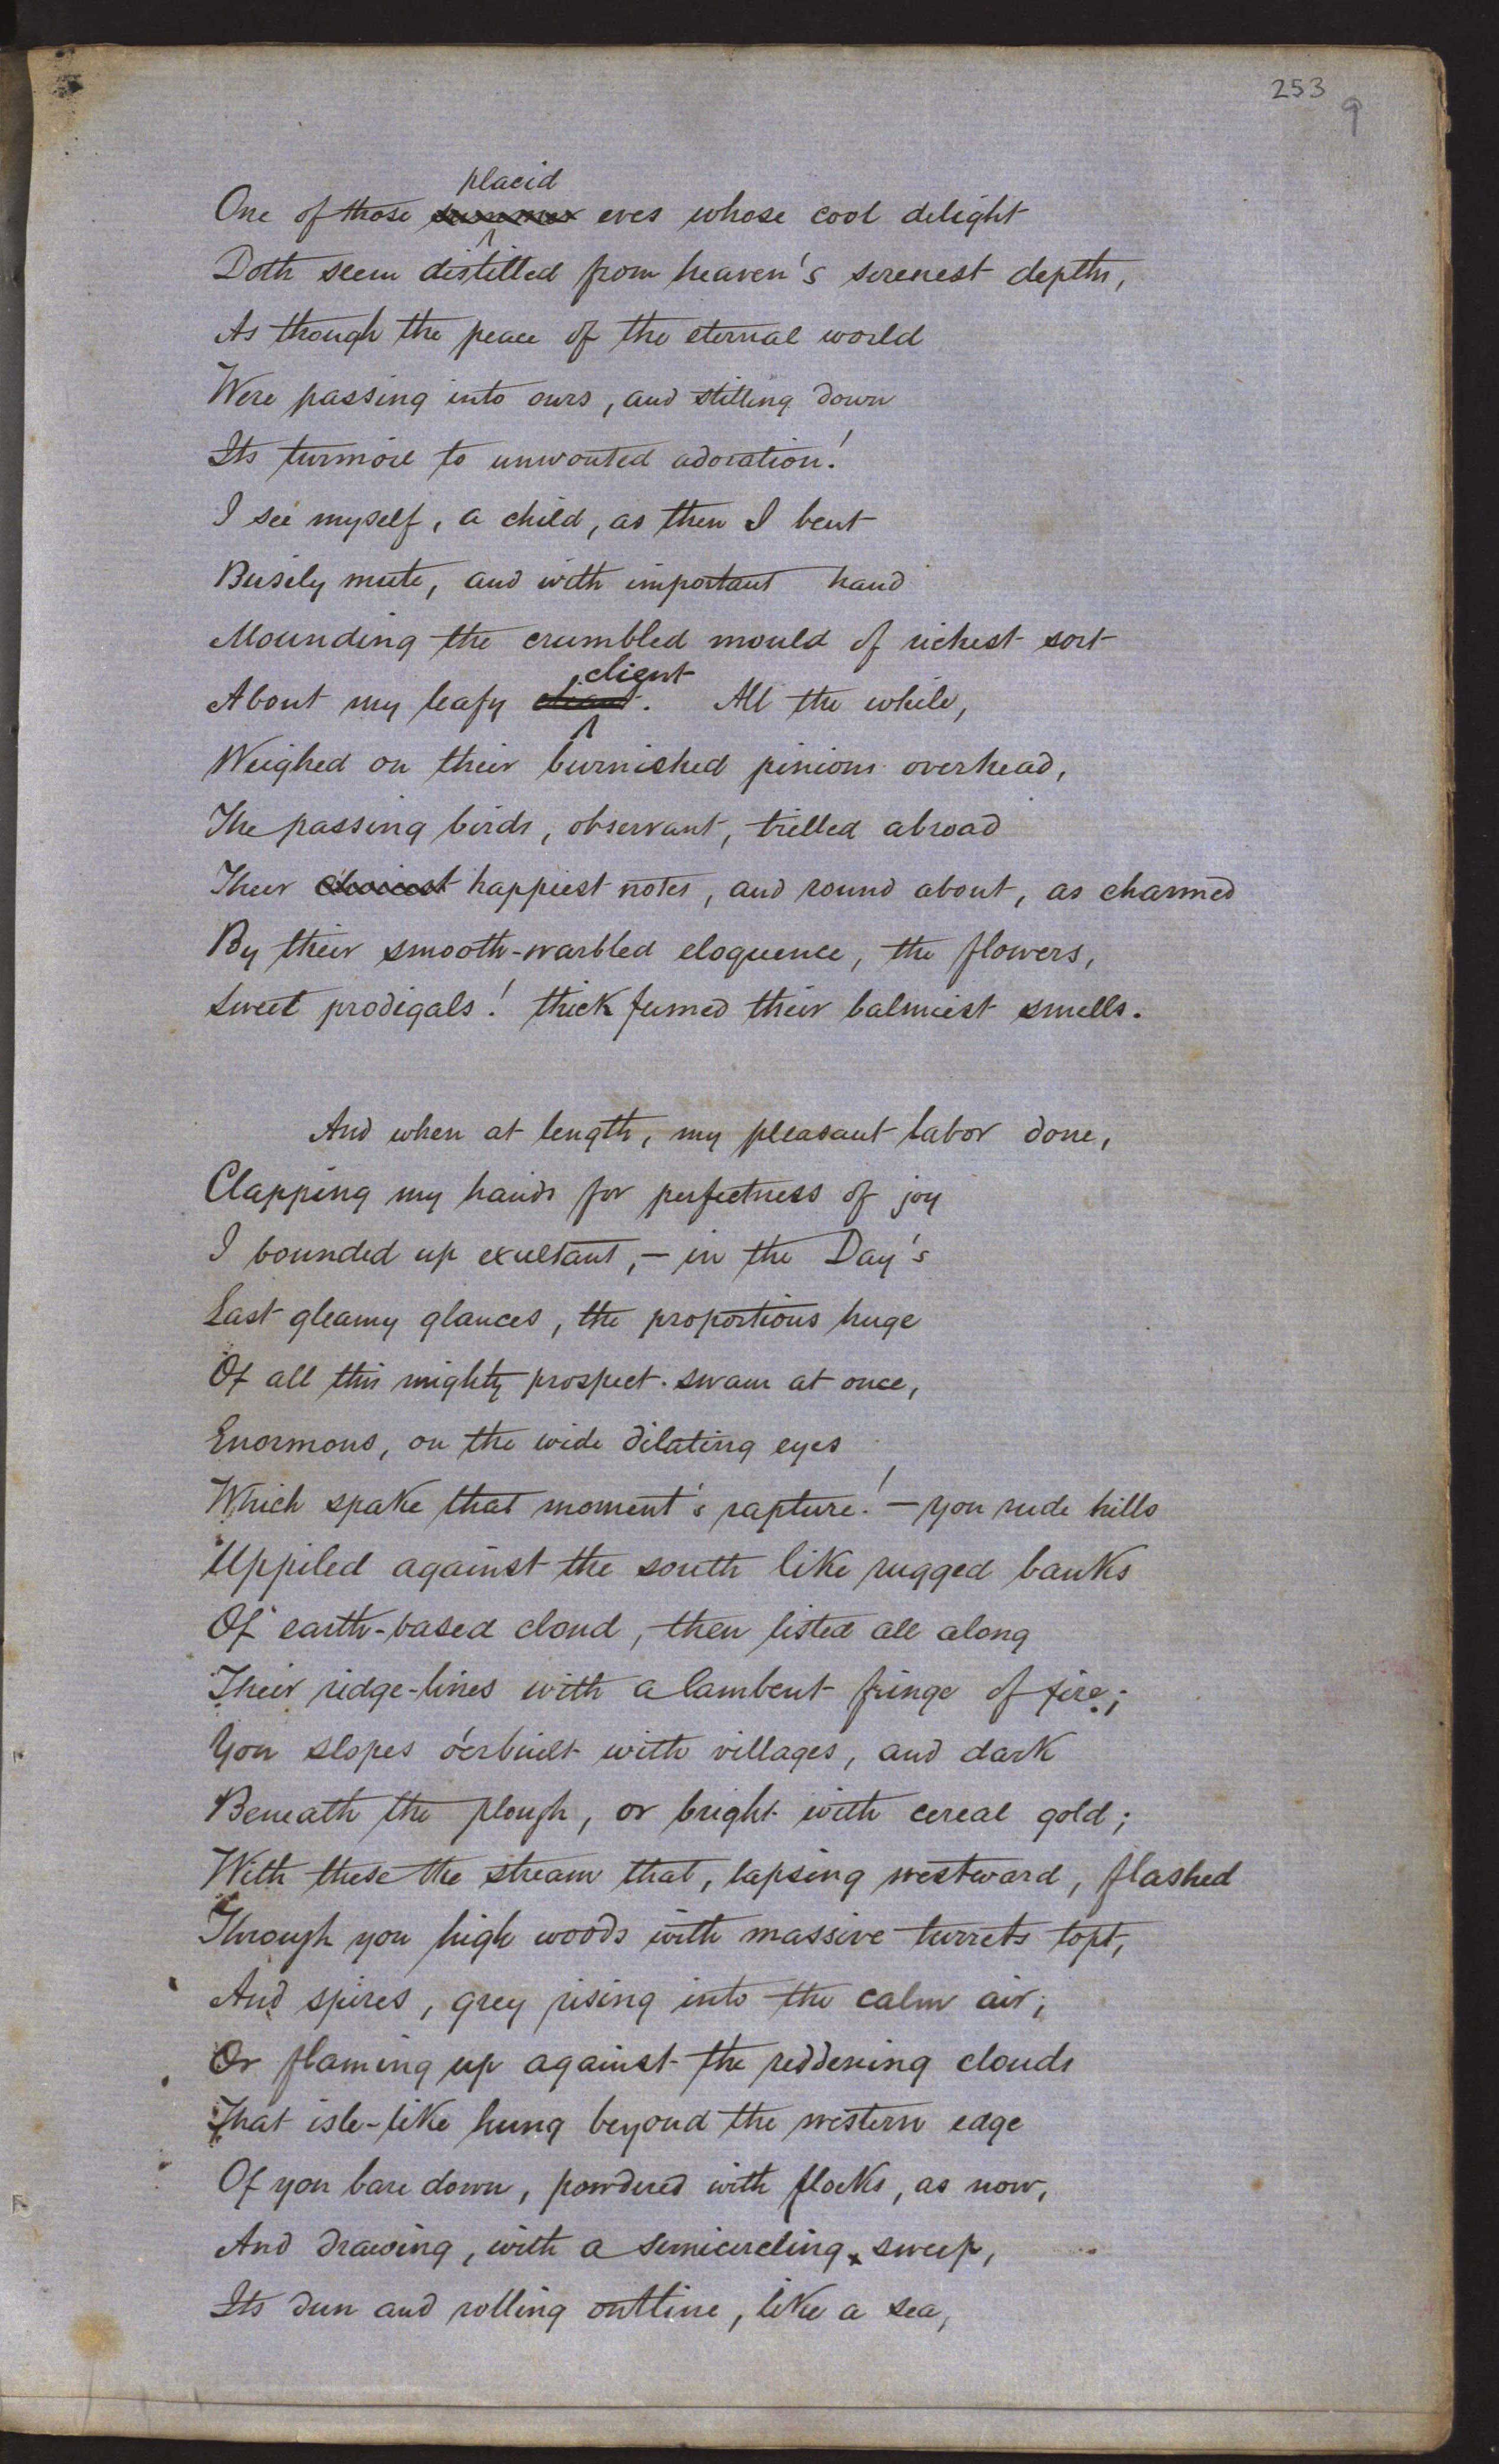 253
9
placid
One of those summer eves whose cool delight
Doth seem distilled from heaven's serenest depths,
As though the peace of the eternal world
Were passing into ours, and stilling down
Its turmoil to unwonted adoration!
I see myself, a child, as then I bent
Busily mute, and with important hand
Mounding the crumbled mould of richest sort
client
About my leafy client. All the while,
Weighed on their burnished pinions overhead,
The passing birds, observant, trilled abroad
Their choicest happiest notes, and round about, as charmed
By their smooth-warbled eloquence, the flowers,
Sweet prodigals! thick fumed their balmiest smells.
And when at length, my pleasant labor done,
Clapping my hands for perfectness of joy
I bounded up exultant,— in the Day's
Last gleamy glances, the proportions huge
Of all this mighty prospect swam at once,
Enormous, on the wide dilating eyes
Which spake that moment's rapture!— yon rude hills
Uppiled against the south like rugged banks
Of earth-based cloud, then listed all along
Their ridge-lines with a lambent fringe of fire;
Yon slopes o'erbuilt with villages, and dark
Beneath the plough, or bright with cereal gold;
With these the stream that, lapsing westward, flashed
Through yon high woods with massive turrets topt,
And spires, grey rising into the calm air,
Or flaming up against the reddening clouds
That isle-like hung beyond the western edge
Of yon bare down, powdered with flocks, as now,
And drawing, with a semicircling sweep,
Its dun and rolling outline, like a sea,